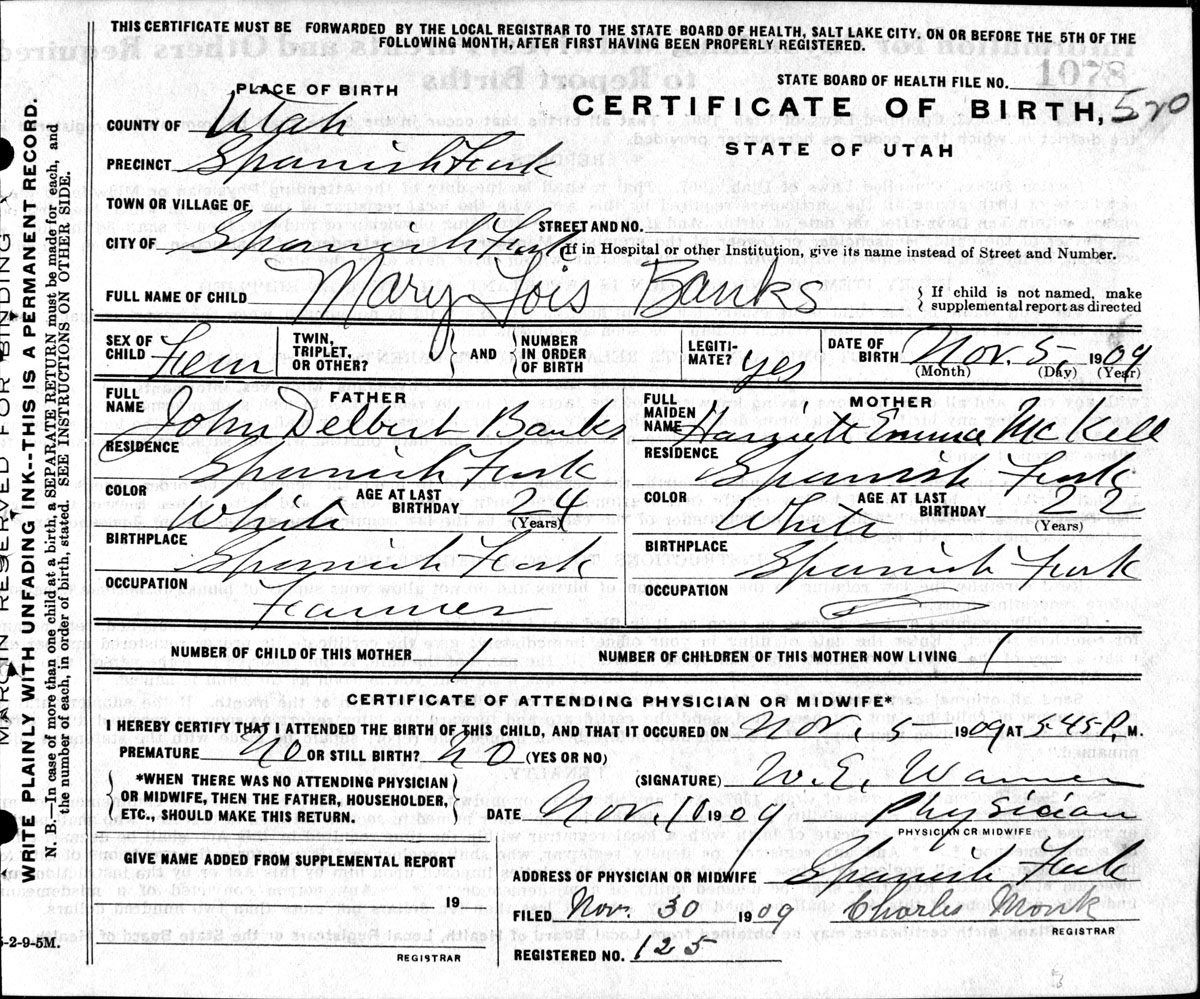 THIS CERTIFICATE MUST BE FORWARDED BY THE LOCAL REGISTRAR TO THE STATE BOARD OF HEALTH, SALT LAKE CITY. ON OR BEFORE THE 5TH OF THE
FOLLOWING MONTH, AFTER FIRST HAVING BEEN PROPERLY REGISTERED.
STATE BOARD OF HEALTH FILE NO. 1078
PLACE OF BIRTH
CERTIFICATE OF BIRTH, 570
COUNTY OF Utah
STATE OF UTAH
PRECINCT Spanish Fork
TOWN OR VILLAGE OF
STREET AND NO.
CITY OF Spanish Fork
If in Hospital or other Institution, give its name instead of Street and Number.
FULL NAME OF CHILD Mary Lois Banks
If child is not named, make
supplemental report as directed
SEX OF CHILD Fem
TWIN, TRIPLET, OR OTHER?
AND
NUMBER IN ORDER OF BIRTH
LEGITI-MATE? yes
DATE OF BIRTH Nov. 5 1909
(Month) (Day) (Year)
FATHER
FULL NAME John Delbert Banks
RESIDENCE Spanish Fork
COLOR White
AGE AT LAST BIRTHDAY 24
(Years)
BIRTHPLACE Spanish Fork
OCCUPATION Farmer
MOTHER
FULL MAIDEN NAME Harriett Emma McKell
RESIDENCE Spanish Fork
COLOR White
AGE AT LAST BIRTHDAY 22
(Years)
BIRTHPLACE Spanish Fork
OCCUPATION
NUMBER OF CHILD OF THIS MOTHER 1
NUMBER OF CHILDREN OF THIS MOTHER NOW LIVING 1
CERTIFICATE OF ATTENDING PHYSICIAN OR MIDWIFE*
I HEREBY CERTIFY THAT I ATTENDED THE BIRTH OF THIS CHILD, AND THAT IT OCCURED ON Nov. 5 1909 AT 5:45 P. M.
PREMATURE No OR STILL BIRTH? No (YES OR NO)
*WHEN THERE WAS NO ATTENDING PHYSICIAN
OR MIDWIFE, THEN THE FATHER, HOUSEHOLDER,
ETC., SHOULD MAKE THIS RETURN.
(SIGNATURE) W.E. Warner
DATE Nov 10 1909
Physician
PHYSICIAN OR MIDWIFE
GIVE NAME ADDED FROM SUPPLEMENTAL REPORT
19
REGISTRAR
ADDRESS OF PHYSICIAN OR MIDWIFE Spanish Fork
FILED Nov. 30 1909 Charles Monk
REGISTRAR
REGISTERED NO. 125
MARGIN RESERVED FOR BINDING
WRITE PLAINLY WITH UNFADING INK--THIS IS A PERMANENT RECORD.
N. B.--In case of more than one child at a birth, a SEPARATE RETURN must be made for each, and
the number of each, in order of birth, stated. SEE INSTRUCTIONS ON OTHER SIDE.
5-2-9-5M.